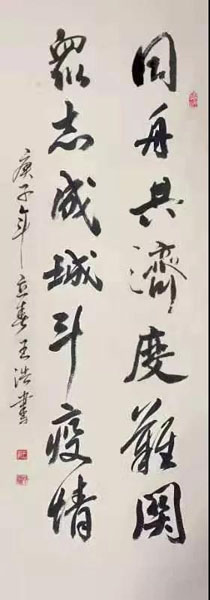 同舟共濟度難関
眾志成城斗疫情
庚子年立春王浩書